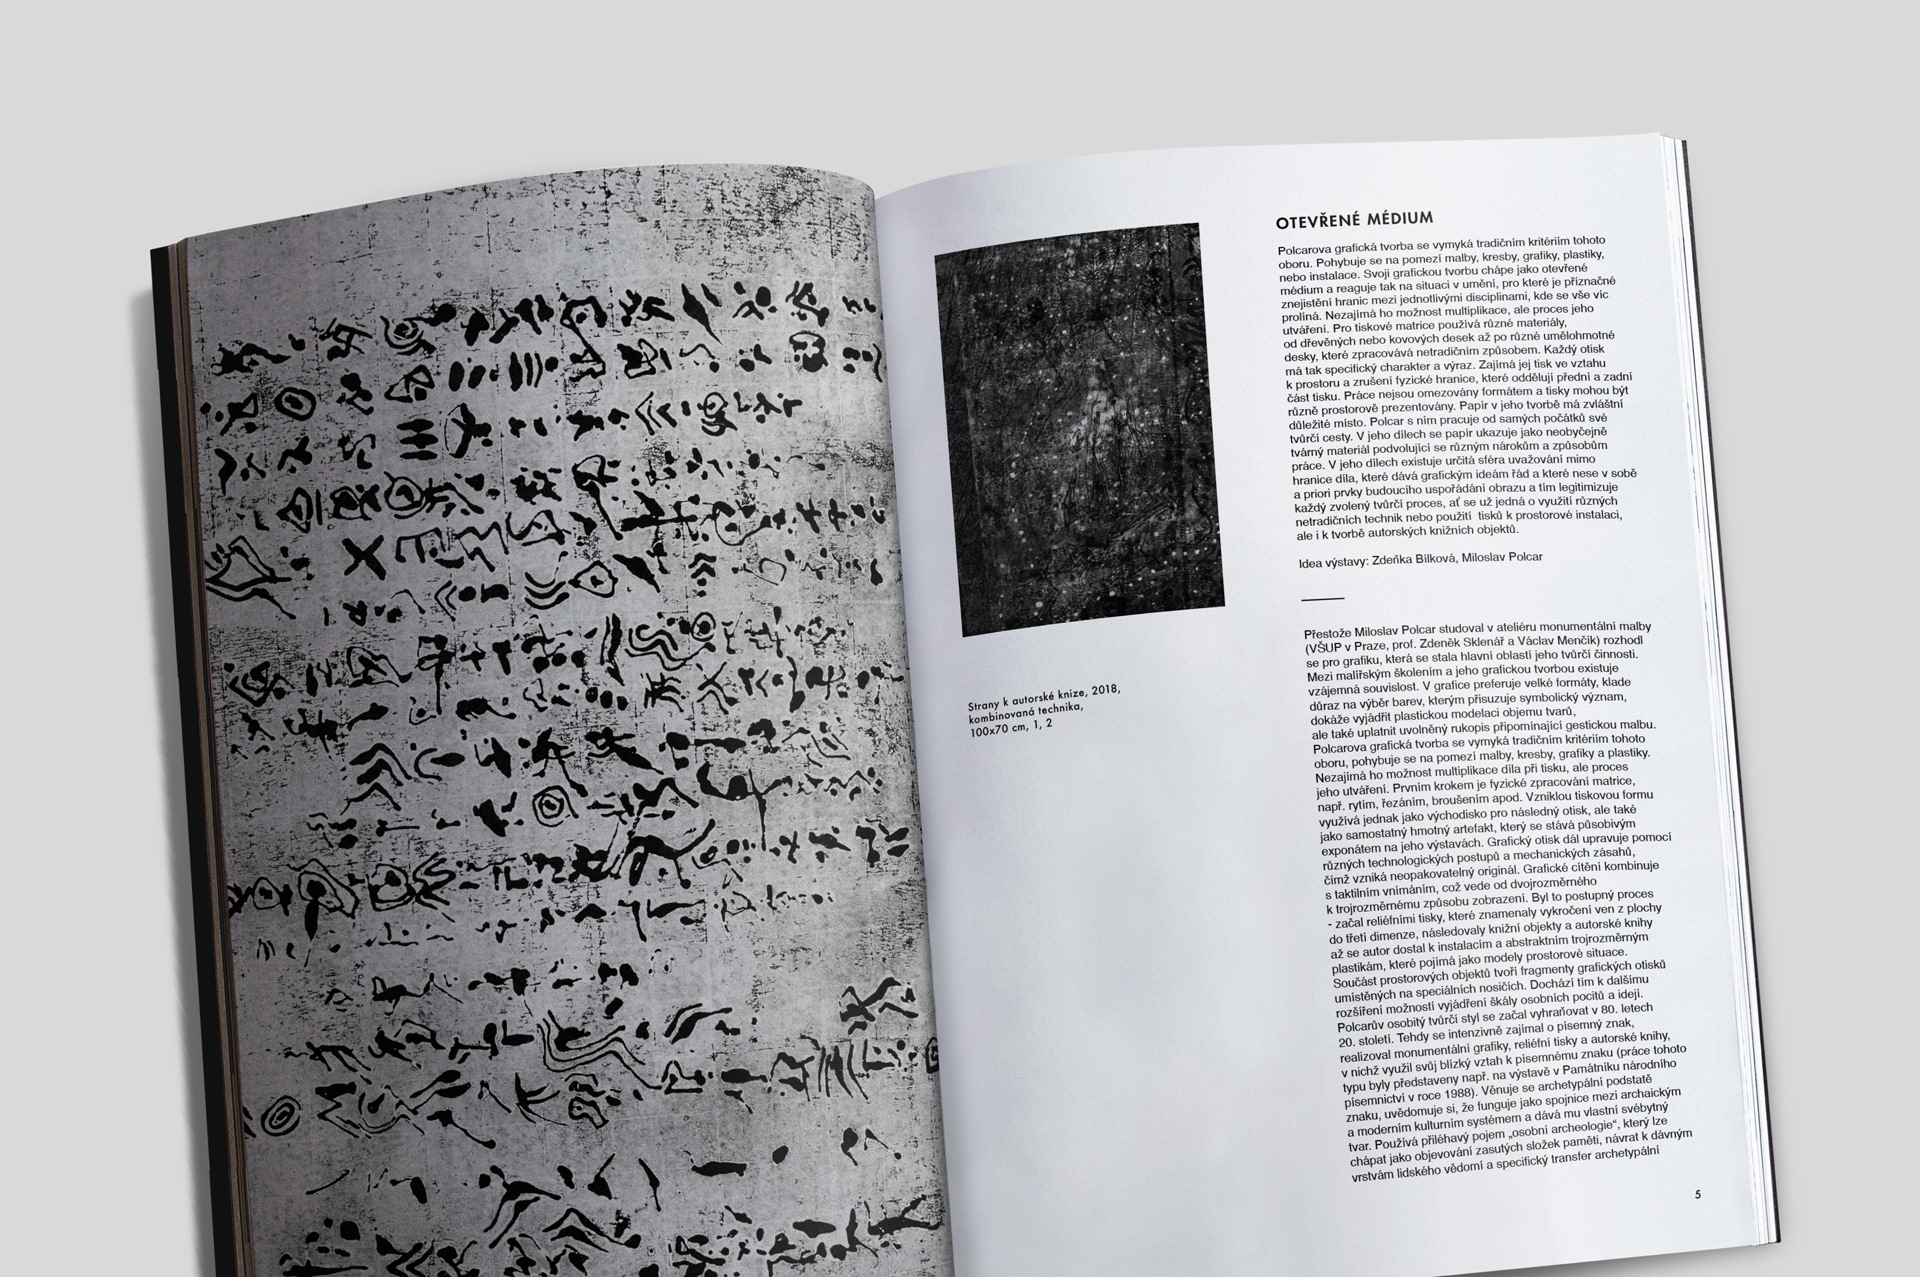 Strany k autorské knize, 2018,
kombinovaná technika,
100x70 cm, 1, 2
OTEVŘENÉ MÉDIUM
Polcarova grafická tvorba se vymyká tradičním kritériím tohoto
oboru. Pohybuje se na pomezí malby, kresby, grafiky, plastiky,
nebo instalace. Svoji grafickou tvorbu chápe jako otevřené
médium a reaguje tak na situaci v umění, pro které je příznačné
znejistění hranic mezi jednotlivými disciplinami, kde se vše víc
prolíná. Nezajímá ho možnost multiplikace, ale proces jeho
utváření. Pro tiskové matrice používá různé materiály,
od dřevěných nebo kovových desek až po různé umělohmotné
desky, které zpracovává netradičním způsobem. Každý otisk
má tak specifický charakter a výraz. Zajímá jej tisk ve vztahu
k prostoru a zrušení fyzické hranice, které oddělují přední a zadní
část tisku. Práce nejsou omezovány formátem a tisky mohou být
různě prostorově prezentovány. Papír v jeho tvorbě má zvláštní
důležité místo. Polcar s ním pracuje od samých počátků své
tvůrčí cesty. V jeho dílech se papír ukazuje jako neobyčejně
tvárný materiál podvolující se různým nárokům a způsobům
práce. V jeho dílech existuje určitá sféra uvažování mimo
hranice díla, které dává grafickým ideám řád a které nese v sobě
a priori prvky budoucího uspořádání obrazu a tím legitimizuje
každý zvolený tvůrčí proces, ať se už jedná o využití různých
netradičních technik nebo použití tisků k prostorové instalaci,
ale i k tvorbě autorských knižních objektů.
Idea výstavy: Zdeňka Bílková, Miloslav Polcar
Přestože Miloslav Polcar studoval v ateliéru monumentální malby
(VŠUP v Praze, prof. Zdeněk Sklenář a Václav Menčík) rozhodl
se pro grafiku, která se stala hlavní oblastí jeho tvůrčí činnosti.
Mezi malířským školením a jeho grafickou tvorbou existuje
vzájemná souvislost. V grafice preferuje velké formáty, klade
důraz na výběr barev, kterým přisuzuje symbolický význam,
dokáže vyjádřit plastickou modelaci objemu tvarů,
ale také uplatnit uvolněný rukopis připomínající gestickou malbu.
Polcarova grafická tvorba se vymyká tradičním kritériím tohoto
oboru, pohybuje se na pomezí malby, kresby, grafiky a plastiky.
Nezajímá ho možnost multiplikace díla při tisku, ale proces
jeho utváření. Prvním krokem je fyzické zpracování matrice,
např. rytím, řezáním, broušením apod. Vzniklou tiskovou formu
využívá jednak jako východisko pro následný otisk, ale také
jako samostatný hmotný artefakt, který se stává působivým
exponátem na jeho výstavách. Grafický otisk dál upravuje pomocí
různých technologických postupů a mechanických zásahů,
čímž vzniká neopakovatelný originál. Grafické cítění kombinuje
s taktilním vnímáním, což vede od dvojrozměrného
k trojrozměrnému způsobu zobrazení. Byl to postupný proces
- začal reliéfními tisky, které znamenaly vykročení ven z plochy
do třetí dimenze, následovaly knižní objekty a autorské knihy
až se autor dostal k instalacím a abstraktním trojrozměrným
plastikám, které pojímá jako modely prostorové situace.
Součást prostorových objektů tvoří fragmenty grafických otisků
umístěných na speciálních nosičích. Dochází tím k dalšímu
rozšíření možností vyjádření škály osobních pocitů a idejí.
Polcarův osobitý tvůrčí styl se začal vyhraňovat v 80. letech
20. století. Tehdy se intenzivně zajímal o písemný znak,
realizoval monumentální grafiky, reliéfní tisky a autorské knihy,
v nichž využil svůj blízký vztah k písemnému znaku (práce tohoto
typu byly představeny např. na výstavě v Památníku národního
písemnictví v roce 1988). Věnuje se archetypální podstatě
znaku, uvědomuje si, že funguje jako spojnice mezi archaickým
a moderním kulturním systémem a dává mu vlastní svébytný
tvar. Používá přiléhavý pojem „osobní archeologie“, který lze
chápat jako objevování zasutých složek paměti, návrat k dávným
vrstvám lidského vědomí a specifický transfer archetypální
5